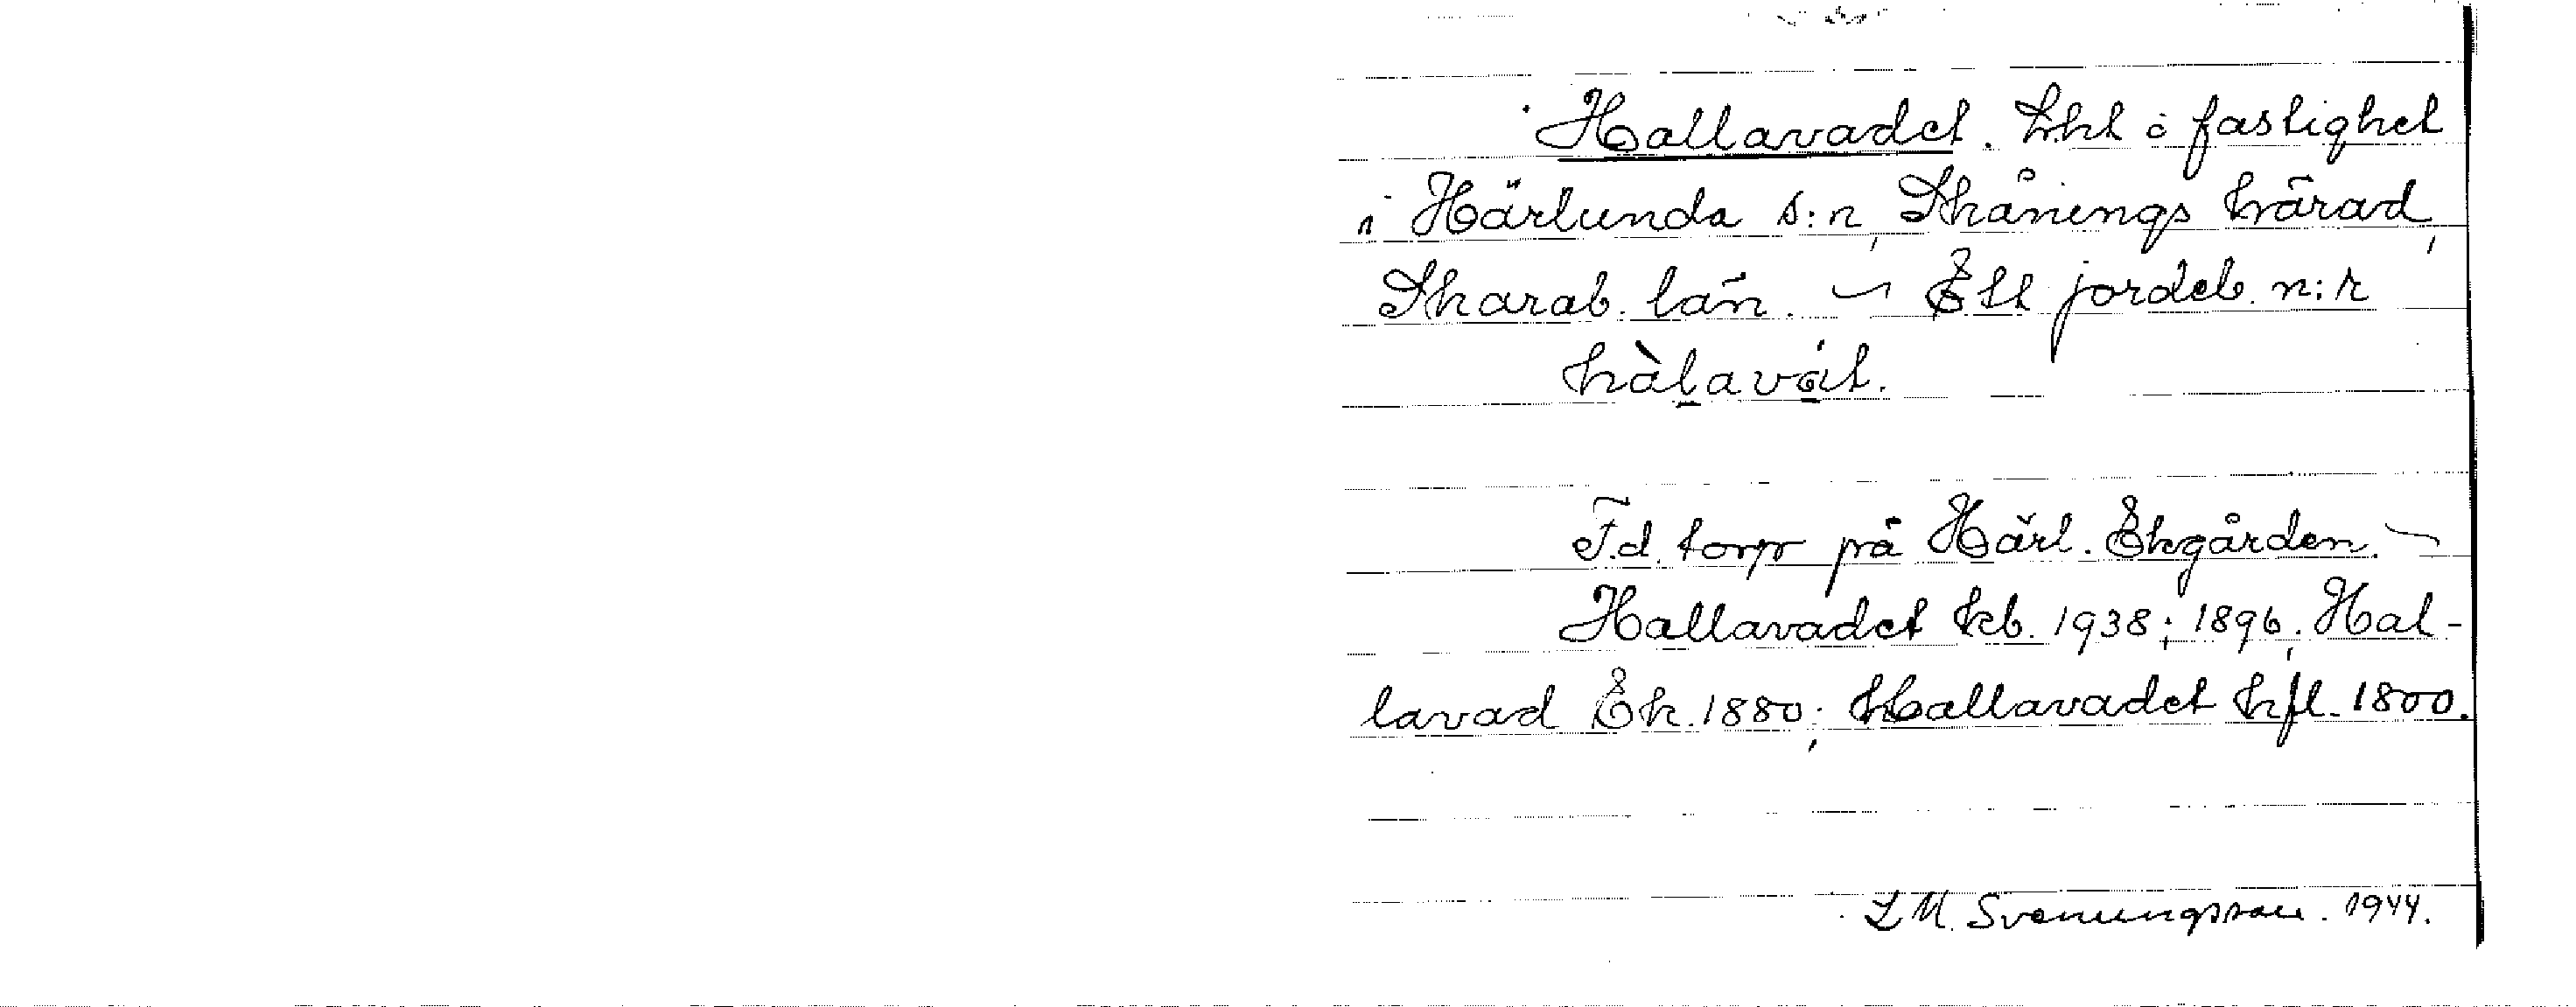 Hallavadet. Lht o fastighet
i Härlunda s:n, Skånings härad,
Skarab. län. ~ Ett jordeb. n:r
hàlavát.
F.d. torp på Härl. Ekgården. ~
Hallavadet kb. 1938; 1896; Hal-
lavad Ek. 1880; Hallavadet hfl. 1800.
L M. Svenungsson. 1944.